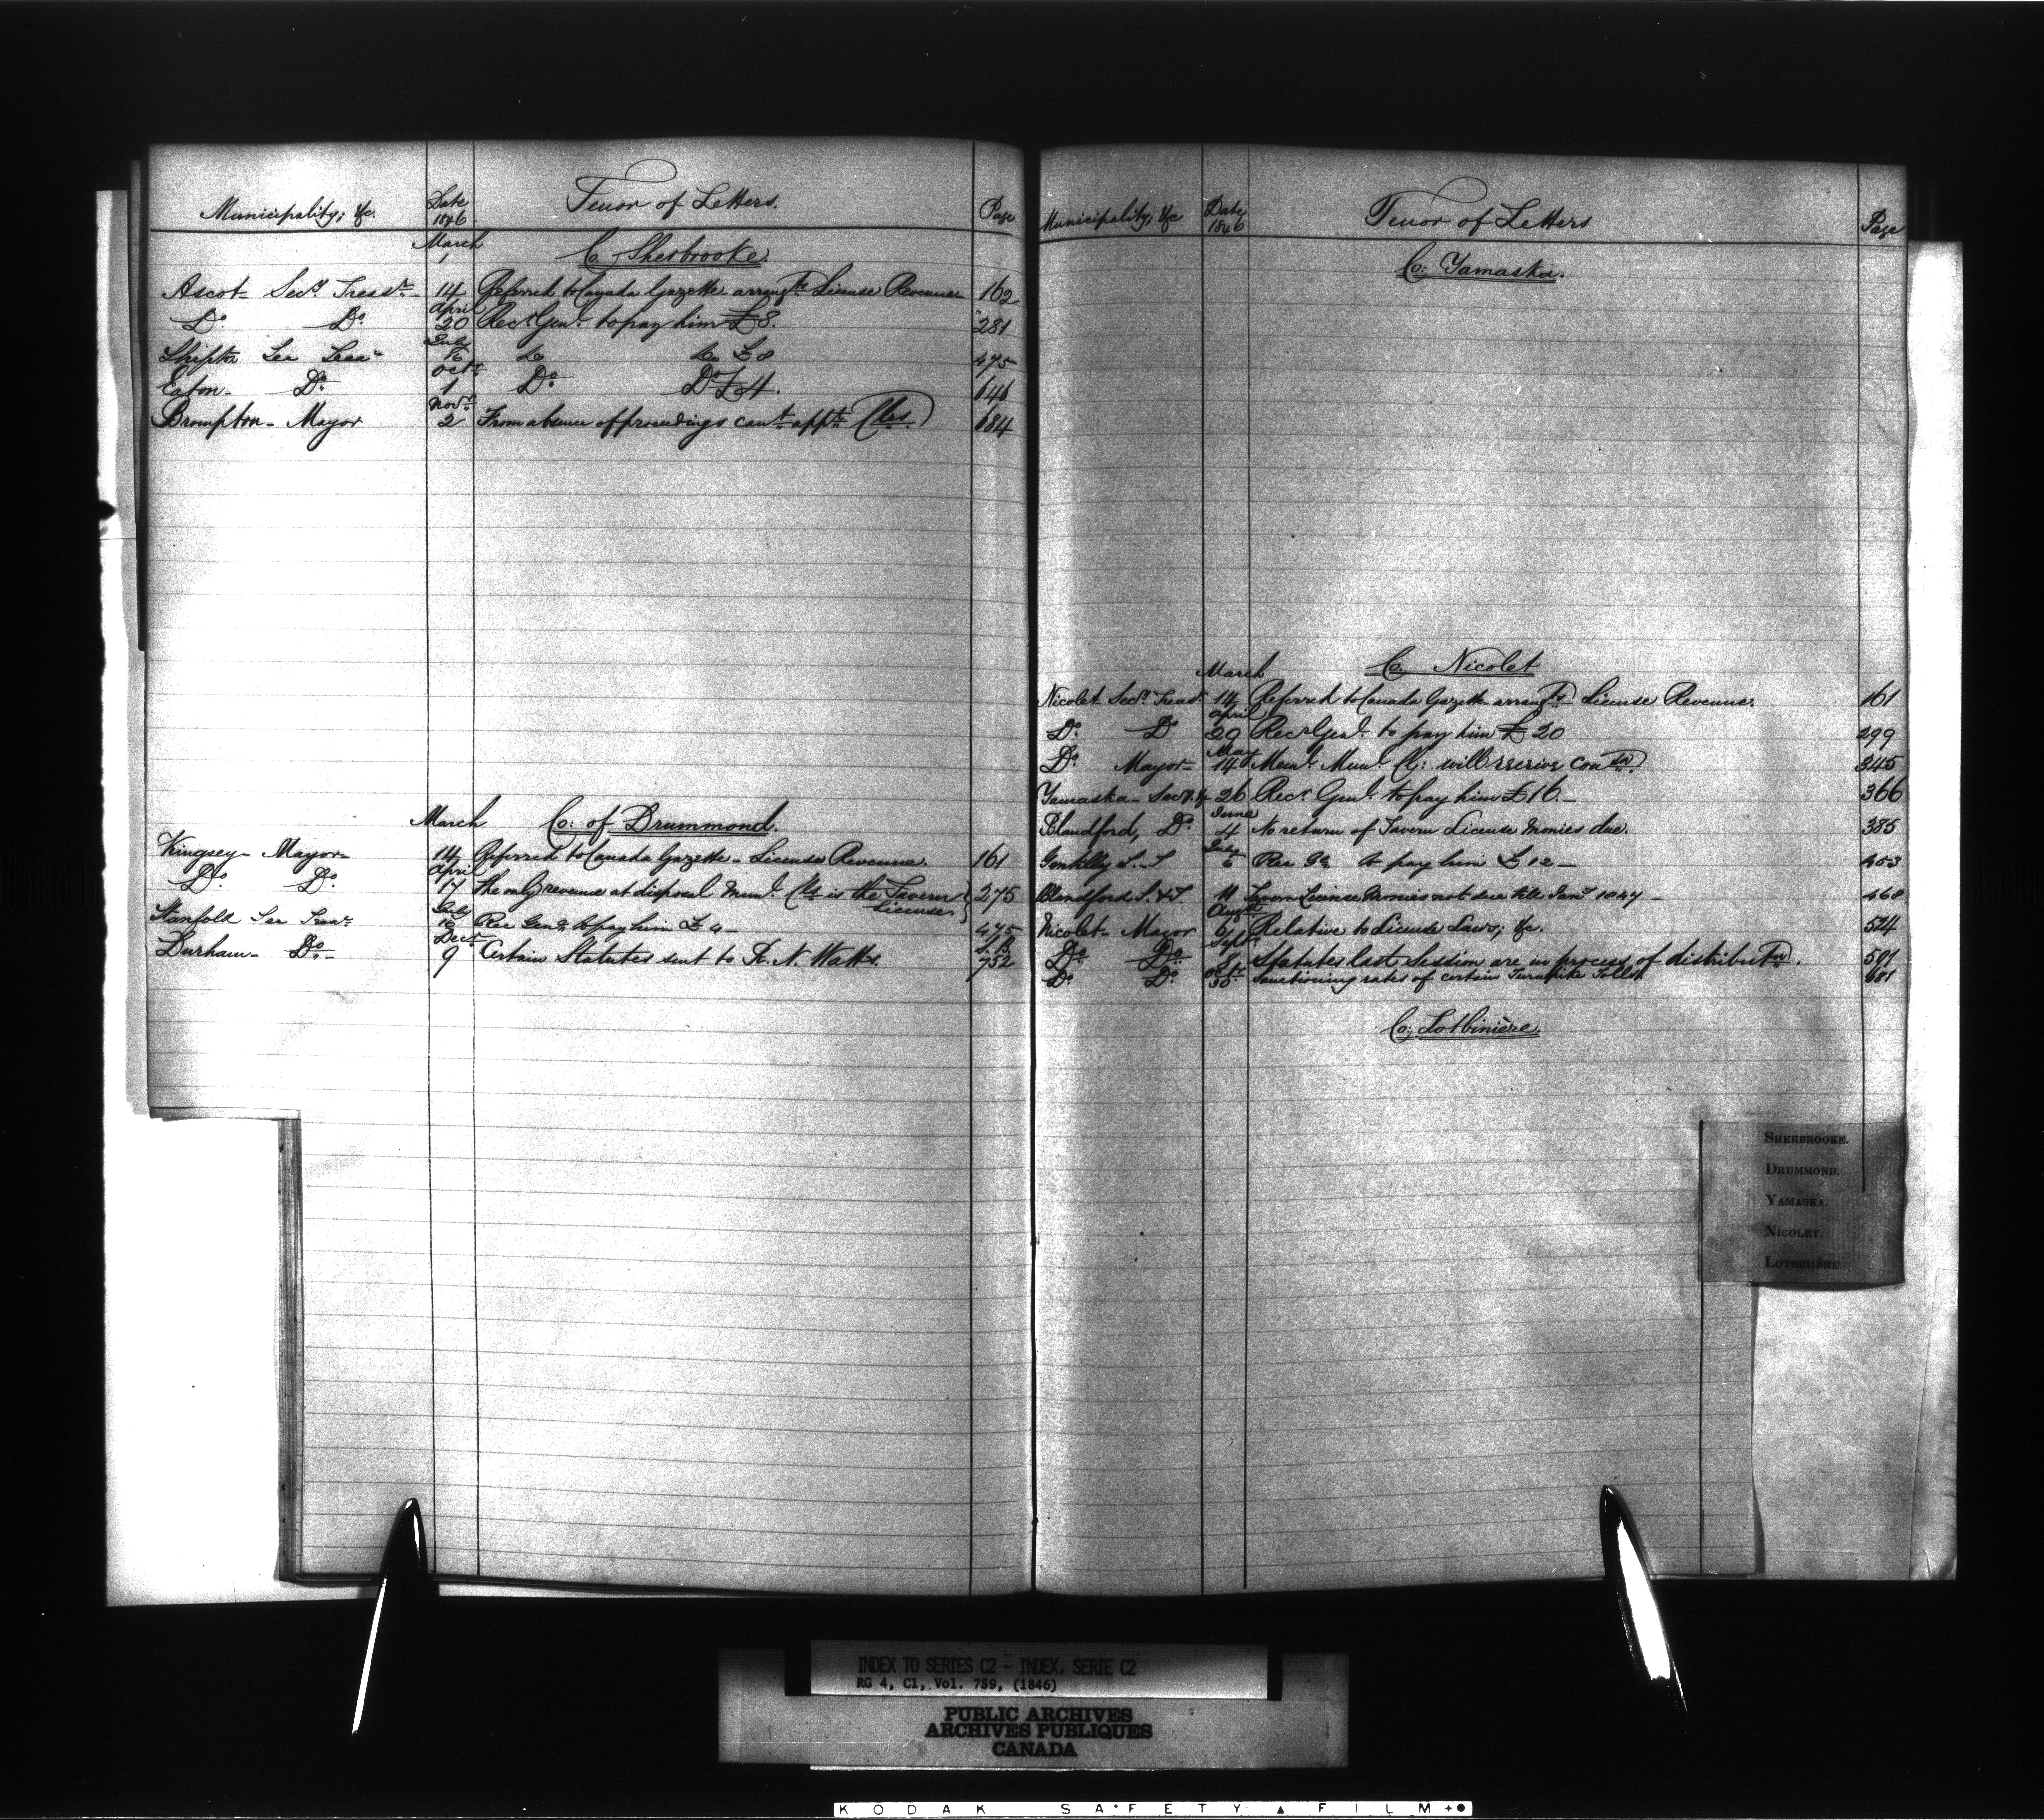 Municipality; &c. Date 1846 Tenor of Letters. Page
March Co. Sherbrooke
Ascot Secy Treasr 14 Referred to Canada Gazette arrangts License Revenue 162
April
Do. Do. 20 Recr Genl. to pay him £8. 281
July
Shipton Sec Treasr 16 Do Do £8 475
Octr
Eaton Do. 1 Do. Do £4. 646
Novr
Brompton Mayor 2 From absence of proceedings cant appt Clls. 684
March Co: of Drummond.
Kingsey Mayor 14 Referred to Canada Gazette License Revenue. 161
April
Do. Do. 17 The only revenue at disposal Munl. Cls is the Tavern License 275
July
Stanfold Sec Treasr 16 Rec Genl. to pay him £4 475
Decr L.B.
Durham Do. 9 Certain Statutes sent to R. N. Watts. 752
Municipality; &c Date 1846 Tenor of Letters Page
Co: Yamaska.
March Co. Nicolet
Nicolet Secy Treasr 14 Referred to Canada Gazette arrangts License Revenue. 161
April
Do. Do 29 Recr Genl. to pay him £20 299
May
Do. Mayor 14 Meml. Munl. Cl: will receive contn. 345
Yamaska Secy. &c 26 Recr Genl. to pay him £16. 366
June
Blandford, Do. 4 No return of Tavern License Monies due. 385
July
Gentilly S. T 6 Rec Gl to pay him £12 453
Blandford S. & T. 11 Tavern License Monies not due till Jany 1847 468
Augst
Nicolet Mayor 6 Relative to License Laws; &c. 524
Septr.
Do Do 8 Statutes last Session are in process of distributn. 591
Octr
Do. Do. 30 Sanctioning rates of certain Turnpike Tolls 681
Co; Lotbinière.
SHERBROOKE.
DRUMMOND.
YAMASKA.
NICOLET.
LOTBINIÈRE.
INDEX TO SERIES C2 - INDEX, SERIE C2
RG 4, C1, Vol. 759, (1846)
PUBLIC ARCHIVES
ARCHIVES PUBLIQUES
CANADA
KODAK SAFETY FILM